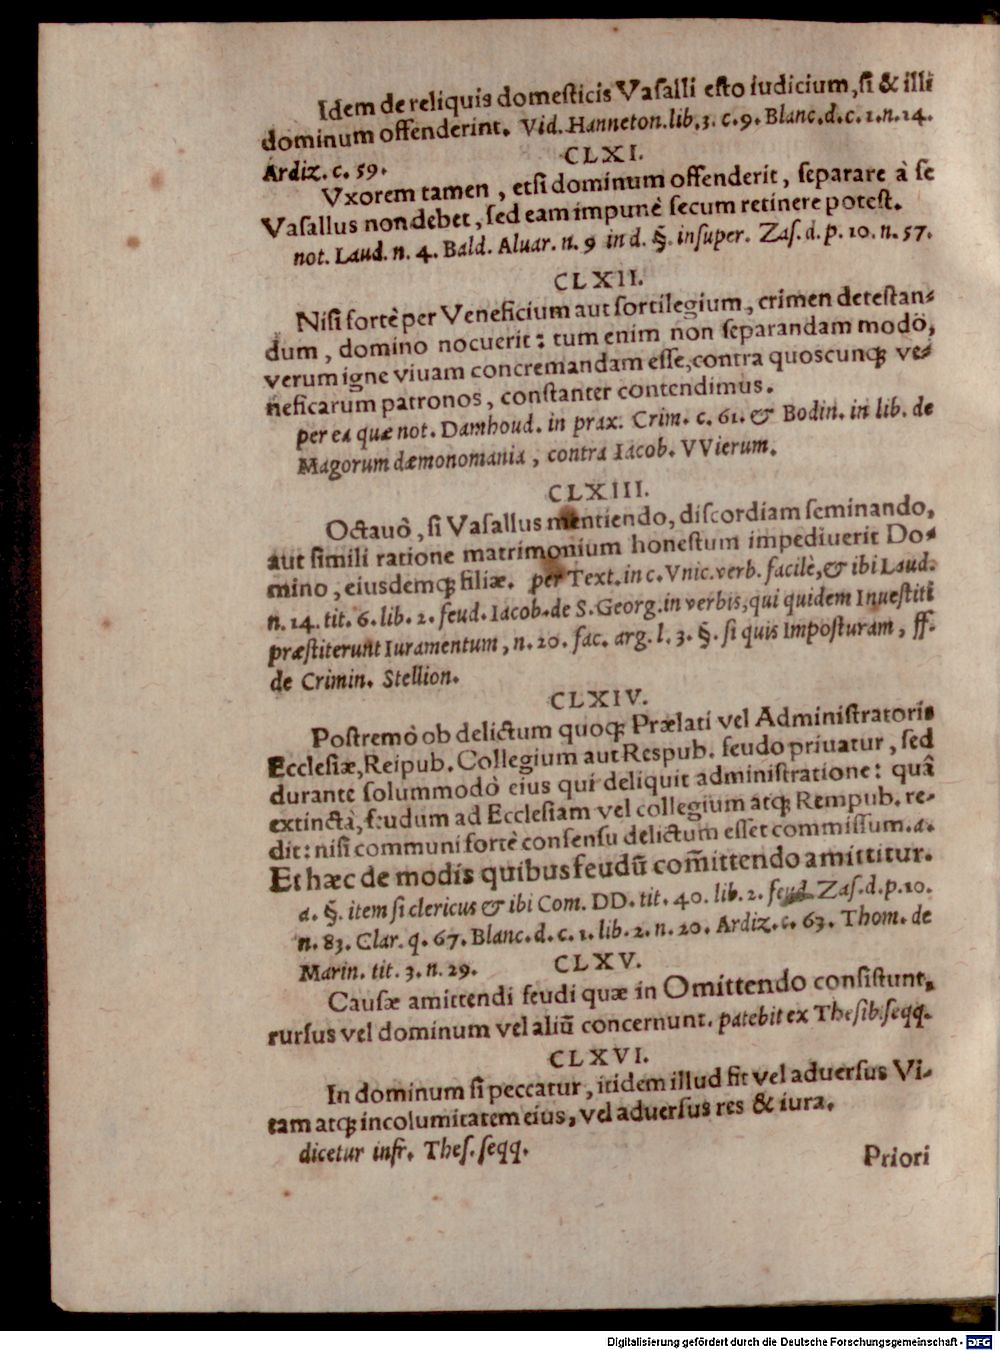 Idem de reliquis domesticis Vasalli esto iudicium, si & illi
dominum offenderint. Vid. Hanneton. lib. 3. c. 9. Blanc. d. c. 1. n. 14.
Ardiz. c. 59.
CLXI.
Vxorem tamen, etsi dominum offenderit, separare à se
Vasallus non debet, sed eam impunè secum retinere potest.
not. Laud. n. 4. Bald. Aluar. n. 9 in d. §. insuper. Zas. d. p. 10. n. 57.
CLXII.
Nisi fortè per Veneficium aut sortilegium, crimen detestan-
dum, domino nocuerit: tum enim non separandam modò,
verum igne viuam concremandam esse, contra quoscunq; ve-
neficarum patronos, constanter contendimus.
per ea quæ not. Damhoud. in prax. Crim. c. 61. & Bodin. in lib. de
Magorum dæmonomania, contra Iacob. VVierum.
CLXIII.
Octauò, si Vasallus mentiendo, discordiam seminando,
aut simili ratione matrimonium honestum impediuerit Do-
mino, eiusdemq; filiæ. per Text. in c. Vnic. verb. facilè, & ibi Laud.
n. 14. tit. 6. lib. 2. feud. Iacob. de S. Georg. in verbis, qui quidem Inuestiti
præstiterunt Iuramentum, n. 20. fac. arg. l. 3. §. si quis Imposturam, ff.
de Crimin. Stellion.
CLXIV.
Postremò ob delictum quoq; Prælati vel Administratoris
Ecclesiæ, Reipub. Collegium aut Respub. feudo priuatur, sed
durante solummodò eius qui deliquit administratione: quâ
extinctâ, feudum ad Ecclesiam vel collegium atq; Rempub. re-
dit: nisi communi fortè consensu delictum esset commissum. a.
Et hæc de modis quibus feudũ com̃ittendo amittitur.
a. §. item si clericus & ibi Com. DD. tit. 40. lib. 2. feud. Zas. d. p. 10.
n. 83. Clar. q. 67. Blanc. d. c. 1. lib. 2. n. 20. Ardiz. c. 63. Thom. de
Marin. tit. 3. n. 29.
CLXV.
Causæ amittendi feudi quæ in Omittendo consistunt,
rursus vel dominum vel aliũ concernunt. patebit ex Thesib. seqq.
CLXVI.
In dominum si peccatur, itidem illud fit vel aduersus Vi-
tam atq; incolumitatem eius, vel aduersus res & iura.
dicetur infr. Thes. seqq.
Priori
Digitalisierung gefördert durch die Deutsche Forschungsgemeinschaft - DFG